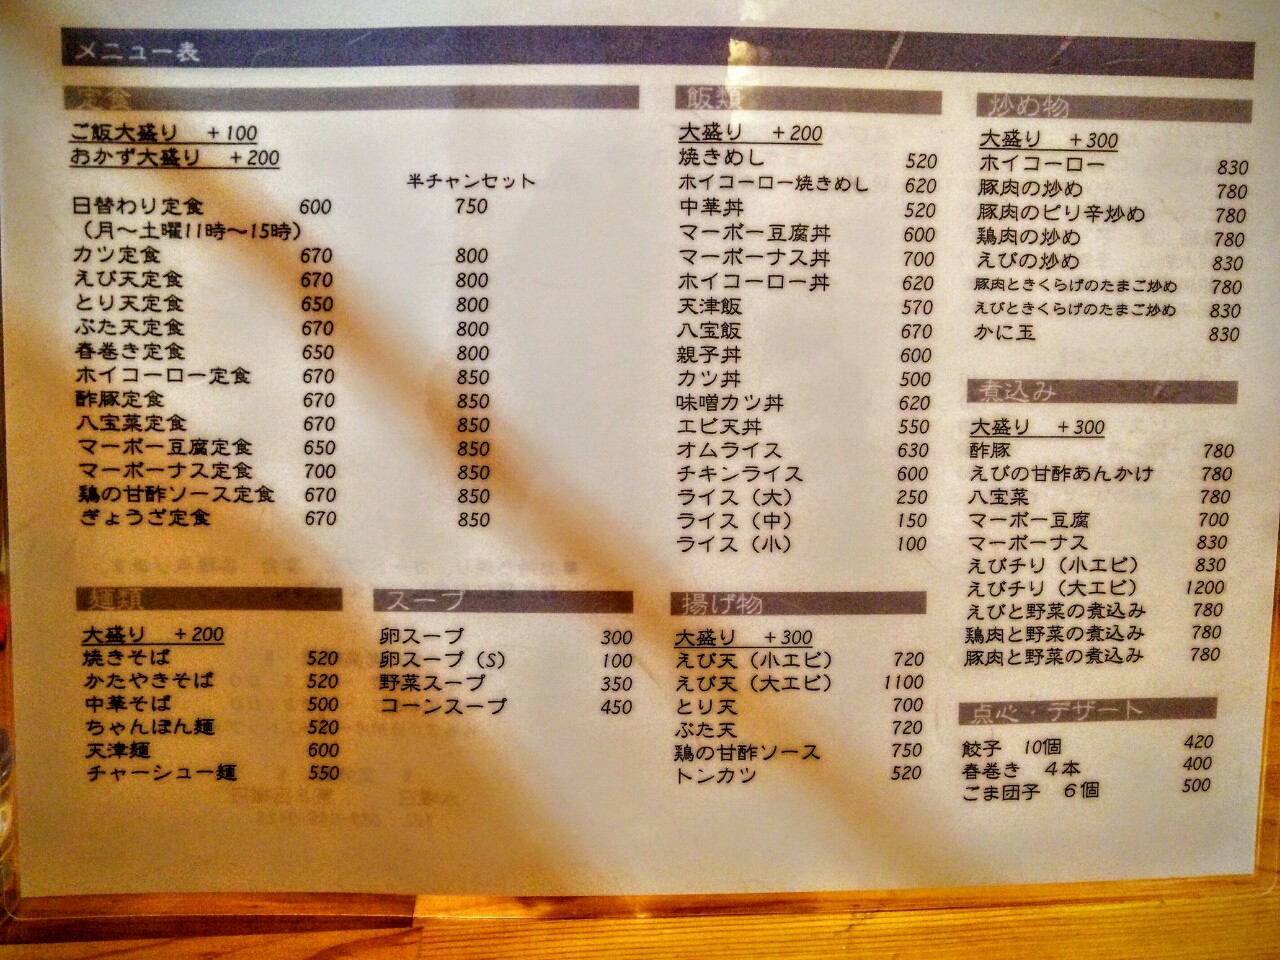 メニュー表
定食
ご飯大盛り +100
おかず大盛り +200
半チャンセット
日替わり定食 600 750
（月～土曜11時～15時）
カツ定食 670 800
えび天定食 670 800
とり天定食 650 800
ぶた天定食 670 800
春巻き定食 650 800
ホイコーロー定食 670 850
酢豚定食 670 850
八宝菜定食 670 850
マーボー豆腐定食 650 850
マーボーナス定食 700 850
鶏の甘酢ソース定食 670 850
ぎょうざ定食 670 850
麺類
大盛り +200
焼きそば 520
かたやきそば 520
中華そば 500
ちゃんぽん麺 520
天津麺 600
チャーシュー麺 550
スープ
卵スープ 300
卵スープ（S） 100
野菜スープ 350
コーンスープ 450
飯類
大盛り +200
焼きめし 520
ホイコーロー焼きめし 620
中華丼 520
マーボー豆腐丼 600
マーボーナス丼 700
ホイコーロー丼 620
天津飯 570
八宝飯 670
親子丼 600
カツ丼 500
味噌カツ丼 620
エビ天丼 550
オムライス 630
チキンライス 600
ライス（大） 250
ライス（中） 150
ライス（小） 100
揚げ物
大盛り +300
えび天（小エビ） 720
えび天（大エビ） 1100
とり天 700
ぶた天 720
鶏の甘酢ソース 750
トンカツ 520
炒め物
大盛り +300
ホイコーロー 830
豚肉の炒め 780
豚肉のピリ辛炒め 780
鶏肉の炒め 780
えびの炒め 830
豚肉ときくらげのたまご炒め 780
えびときくらげのたまご炒め 830
かに玉 830
煮込み
大盛り +300
酢豚 780
えびの甘酢あんかけ 780
八宝菜 780
マーボー豆腐 700
マーボーナス 830
えびチリ（小エビ） 830
えびチリ（大エビ） 1200
えびと野菜の煮込み 780
鶏肉と野菜の煮込み 780
豚肉と野菜の煮込み 780
点心・デザート
餃子 10個 420
春巻き 4本 400
ごま団子 6個 500